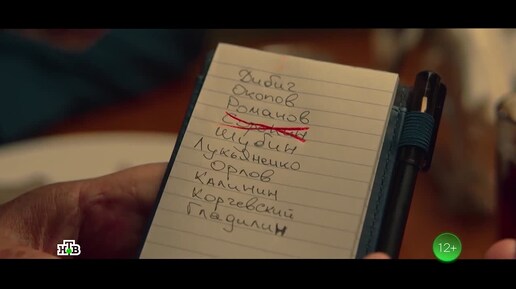 Дибиг
Окопов
Романов
Шубин
Лукьяненко
Орлов
Калинин
Корчевский
Гладилин
НТВ
12+